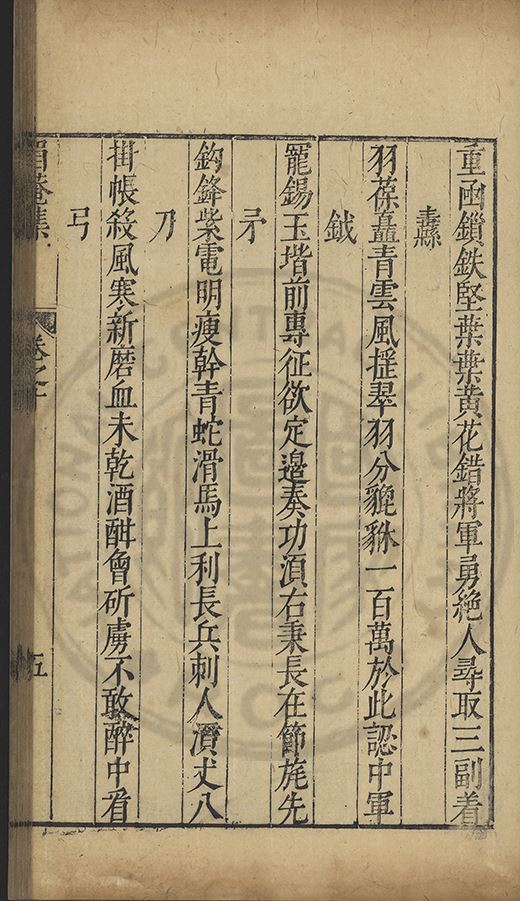 重函鎖鉄堅葉葉黄花錯將軍勇絶人尋取三副着
纛
羽葆矗青雲風揺翠羽分貔貅一百萬於此認中軍
鉞
寵錫玉堦前專征欲定邉奏功湏右秉長在節旄先
矛
鈎鋒紫電明痩幹青蛇滑馬上利長兵刺人湏丈八
刀
掛帳殺風寒新磨血未乾酒酣會斫虜不敢醉中看
弓
眉菴集
卷之十
五